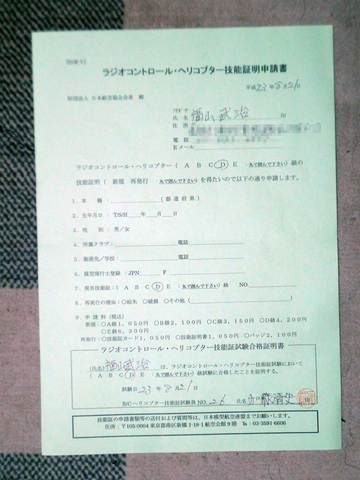 ラジオコントロール・ヘリコプター技能証明申請書
平成23年8月21日
財団法人 日本航空協会会長 殿
フリガナ
氏名 福山武治 印
住所
電話
Eメール
ラジオコントロール・ヘリコプター( A B C D E 丸で囲んで下さい) 級の
技能証明( 新規 再発行 丸で囲んで下さい) を得たいので以下の通り申請します。
1. 本 籍 (都道府県)
2. 生年月日 T/S/H 年 月 日
3. 性 別 男/女
4. 所属クラブ 電話
5. 勤務先/学校 電話
6. 模型飛行士登録 JPN F
7. 現有技能証( A B C D E 丸で囲んで下さい) 級 NO.
8. 再発行の理由 ○紛失 ○破損 ○その他( )
9. 申 請 料 (税込)
新規 ○A級1,050円 ○B級2,100円 ○C級3,150円 ○D級4,200円
○E級6,300円
再発行 ○技能証カード1,050円 ○技能証明書1,050円 ○バッジ2,100円
ラジオコントロール・ヘリコプター技能証試験合格証明書
(氏名) 福山武治 は、ラジオコントロール・ヘリコプター技能証試験において
( A B C D E 丸で囲んで下さい) 級試験に合格したことを証明する。
試験日 23年8月21日
R/Cヘリコプター技能証試験員NO. 26 氏名
技能証の申請書類等の送付および質問等は、日本模型航空連盟までお願いします。
住所:〒105-0004 東京都港区新橋1-18-1航空会館9階 Tel:03-3591-6606